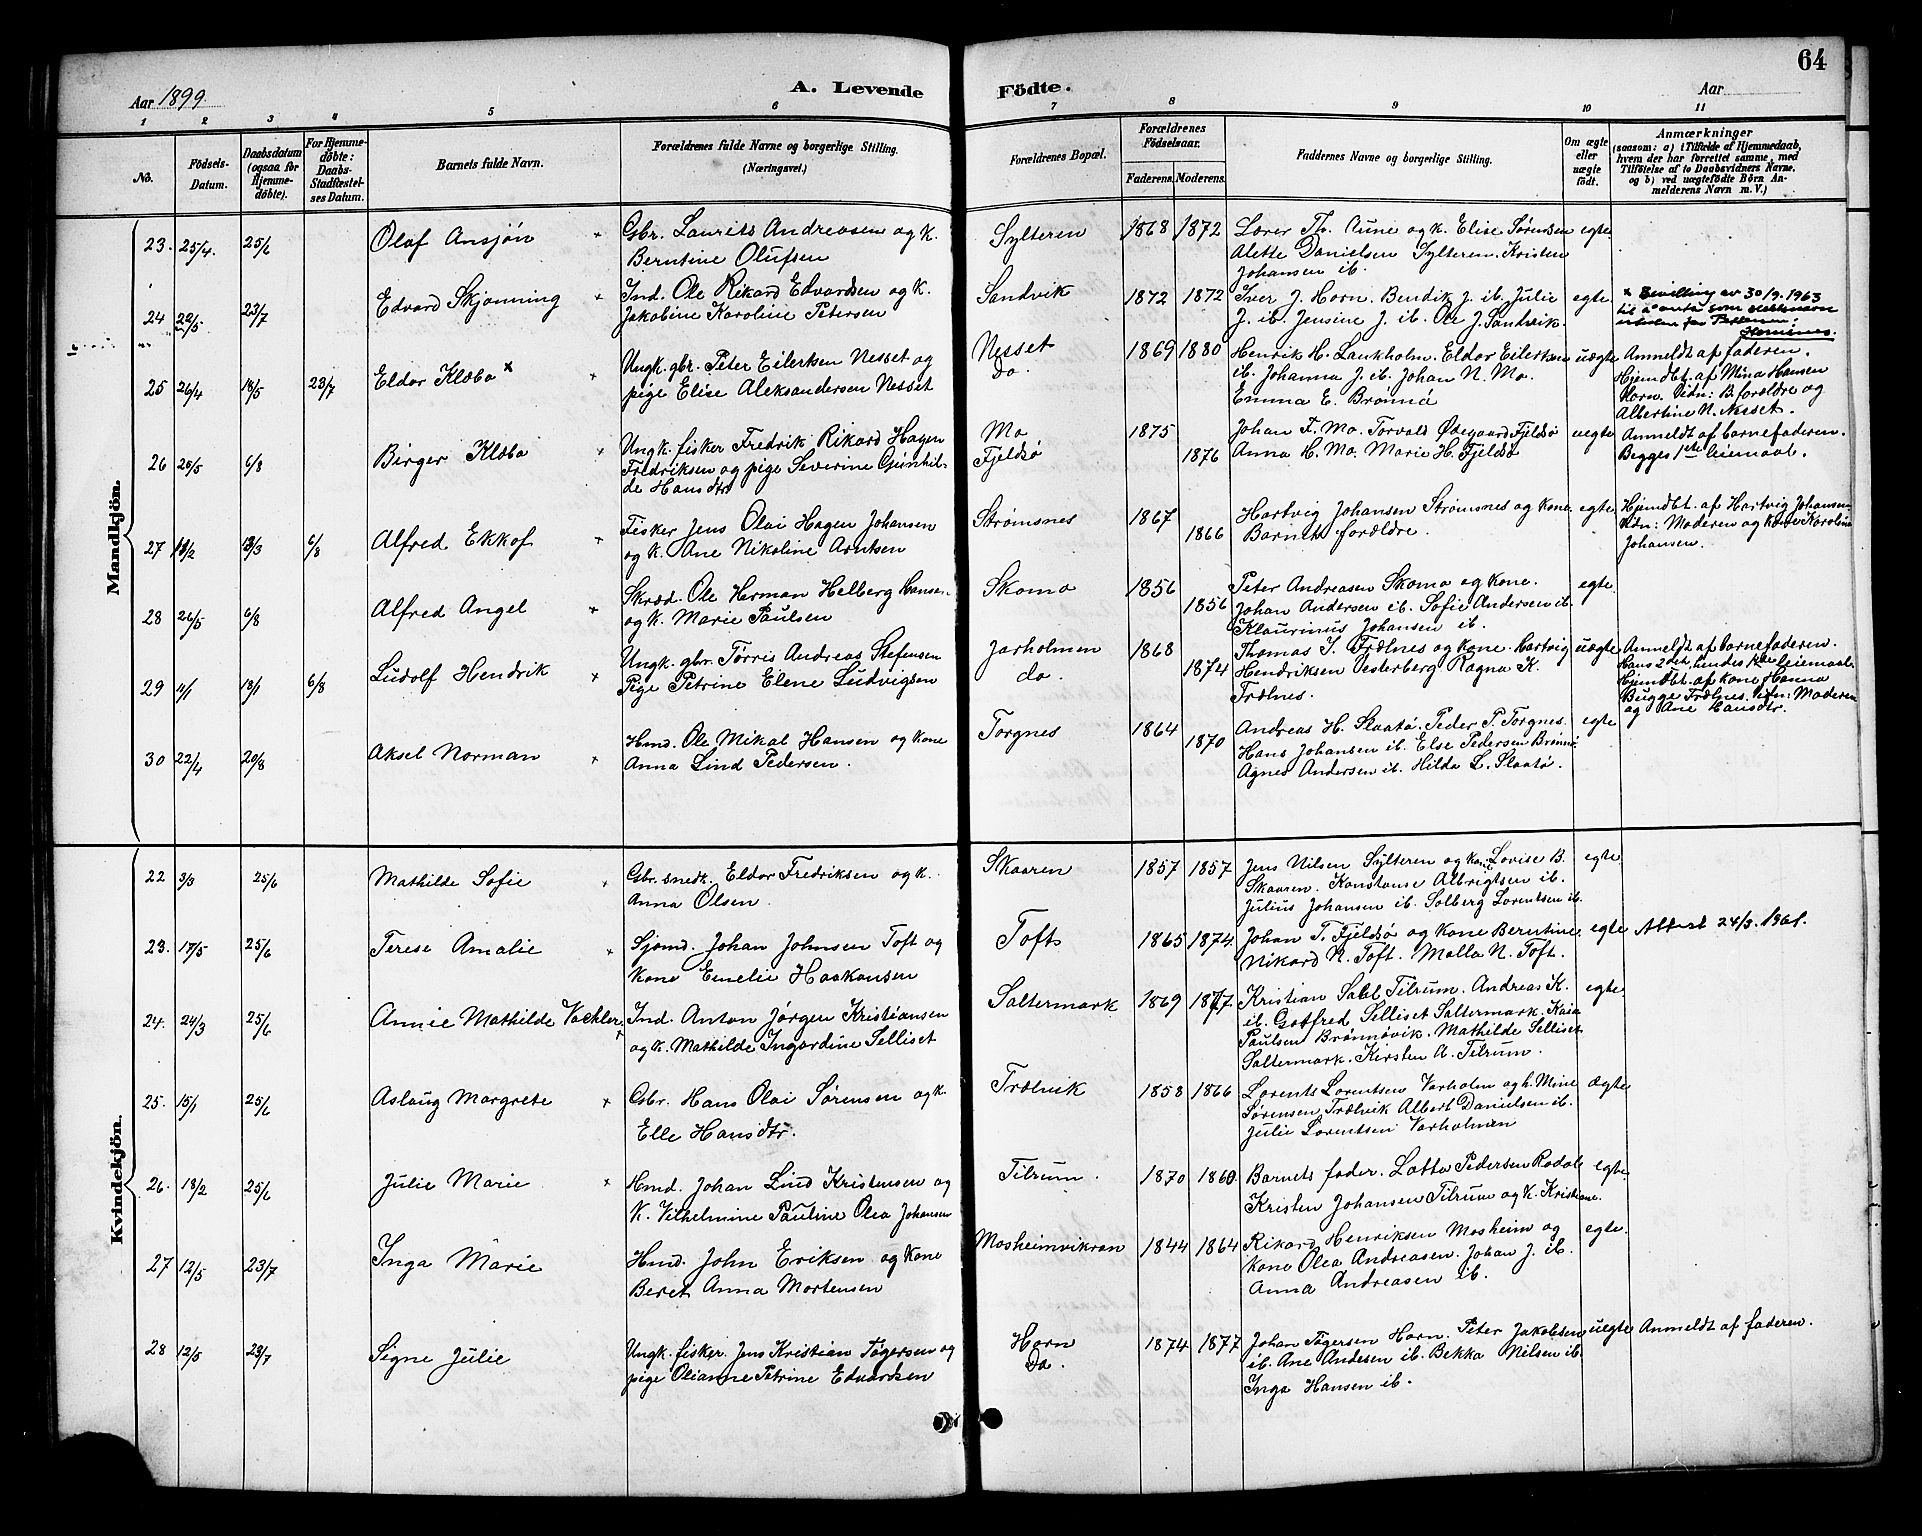 64
Aar 1899.
A. Levende
Födte.
Aar
1 2 3 4 5 6 7 8 9 10 11
No.
Födsels-
Datum.
Daabsdatum
(ogsaa for
Hjemme-
döbte).
For Hjemme-
döbte:
Daabs-
Stadfæstel-
ses Datum.
Barnets fulde Navn.
Forældrenes fulde Navne og borgerlige Stilling.
(Næringsvei.)
Forældrenes Bopæl.
Forældrenes
Födselsaar.
Faderens. Moderens.
Faddernes Navne og borgerlige Stilling.
Om ægte
eller
uægte
født.
Anmærkninger
(saasom: a) i Tilfælde af Hjemmedaab,
hvem der har forrettet samme, med
Tilföielse af to Daabsvidners Navne,
og b) ved uægtefödte Börn An-
melderens Navn m. V.)
Mandkjön.
23. 25/4. 25/6 Olaf Ansjøn
Gbr. Laurits Andreasen og k.
Berntine Olufsen
Sylteren 1868 1872
Lærer Th. Aune og k. Elise Sørensen
Alette Danielsen Sylteren. Kristen
Johansen ib.
egte.
24 22/5 23/7 Edvard Skjønning
Ind. Ole Rikard Edvardsen og k.
Jakobine Karoline Petersen
Sandvik 1872 1872
Iver J. Horn. Bendik J. ib. Julie
J. ib. Jensine J. ib. Ole J. Sandvik.
egte
x Bevilling av 30/9. 1963
til å anta som slektsnavn
25 26/4 18/5 23/7 Eldor Klæbo x
Ungk. gbr. Peter Eilertsen Nesset og
pige Elise Aleksandersen Nesset
Nesset
Do. 1869 1880
Henrik H. Lankholm. Eldor Eilertsen
ib. Johanna J. ib. Johan N. Mo.
Emma E. Brønnø
uægte
Anmeldt af faderen.
Hjemdbt. af Mina Hansen
Horn. Vidn: B.forældre og
Albertine N. Nesset.
26 25/5 6/8 Birger Klæbo
Ungk. fisker Fredrik Rikard Hagen
Fredriksen og pige Severine Gunhil-
de Hansdtr
Mo
Fjeldsø 1875 1876
Johan F. Mo. Torvald Ødegaard Fjeldsø
Anna H. Mo. Marie H. Fjeldsø
uegte
Anmeldt af barnefaderen.
Begges 1ste leiemaal.
27 11/2 13/3 6/8 Alfred Ekkof
Fisker Jens Olai Hagen Johansen
og k. Ane Nikoline Arntsen
Strømsnes 1867 1866
Hartvig Johansen Strømsnes og kone
Barnets forældre.
egte
Hjemdbt. af Hartvig Johansen
Vidn: Moderen og kone Karoline
Johansen.
28 26/5 6/8 Alfred Angel
Skræd. Ole Herman Helberg Hansen
og k. Marie Paulsen
Skomo 1856 1856
Peter Andreasen Skomo og kone.
Johan Andersen ib. Sofie Andersen ib.
Klaurinus Johansen ib.
egte.
29 4/1 18/1 6/8 Ludolf Hendrik
Ungk. gbr. Tørris Andreas Stefensen
Pige Petrine Elene Ludvigsen
Jarholmen
do. 1868 1874
Thomas J. Trælnes og kone. Hartvig
Hendriksen Vesterberg Ragna K.
Trælnes.
uegte
Anmeldt af barnefaderen.
Hans 2det, hendes 1ste leiemaal.
Hjemdbt. af kone Hanna
Bugge Trælnes. Vidn: Moderen
og Ane Hansdtr.
30 22/4 20/8 Aksel Norman
Hmd. Ole Mikal Hansen og kone
Anna Lind Pedersen.
Torgnes 1864 1870
Andreas H. Slaatø. Peder P. Torgnes.
Hans Johansen ib. Else Pedersen Brønnø.
Agnes Andersen ib. Hilda L. Slaatø.
egte
Kvindekjön.
22 3/3 25/6 Mathilde Sofie
Gbr. snedk. Eldor Fredriksen og k.
Anna Olsen.
Skaaren 1857 1857
Jens Nilsen Sylteren og kone Lovise B.
Skaaren. Konstanse Albrigtsen ib.
Julius Johansen ib. Solberg Lorentsen ib.
egte
23. 17/5 25/6 Terese Amalie
Sjømd. Johan Johnsen Toft og
kone Emelie Haakonsen
Toft 1865 1874.
Johan T. Fjeldsø og kone Berntine.
Nikard N. Toft. Malla N. Toft.
egte
Attest 24/3. 1961.
24. 24/3 25/6 Annie Mathilde Vachler
Ind. Anton Jørgen Kristiansen
og k. Mathilde Ingardine Selliset
Saltermark 1869 1877
Kristian Sabl Tilrum. Andreas K.
ib. Gotfred Selliset Saltermark. Kaia
Paulsen Brønnøvik. Mathilde Selliset
Saltermark. Kirsten A. Tilrum.
egte.
25. 15/1 25/6 Aslaug Margrete
Gbr. Hans Olai Sørensen og k.
Elle Hansdtr.
Trælvik 1858 1866
Lorents Lorentsen Varholm og h. Mine
Sørensen Trælvik Albert Danielsen ib.
Julie Lorentsen Varholmen
ægte
26. 18/2 25/6 Julie Marie
Hmd. Johan Lind Kristensen og
K. Vilhelmine Pauline Olea Johansen
Tilrum. 1870 1860.
Barnets fader. Lotte Pedersen Rodal
Kristen Johansen Tilrum og k. Kristiane.
egte.
27 12/5 23/7 Inga Marie
Hmd. John Eriksen og kone
Beret Anna Mortensen
Mosheimvikran 1844 1864
Rikard Henriksen Mosheim og
kone Olea Andreasen. Johan J. ib.
Anna Andreasen ib.
egte.
28 12/5 23/7 Signe Julie
Ungk. fisker. Jens Kristian Tøgersen og
pige Olianne Petrine Edvardsen
Horn
Do. 1874 1877
Johan Tøgersen Horn. Peter Jakobsen
ib. Ane Andersen ib. Bekka Nilsen ib.
Inga Hansen ib.
uegte
Anmeldt af faderen.